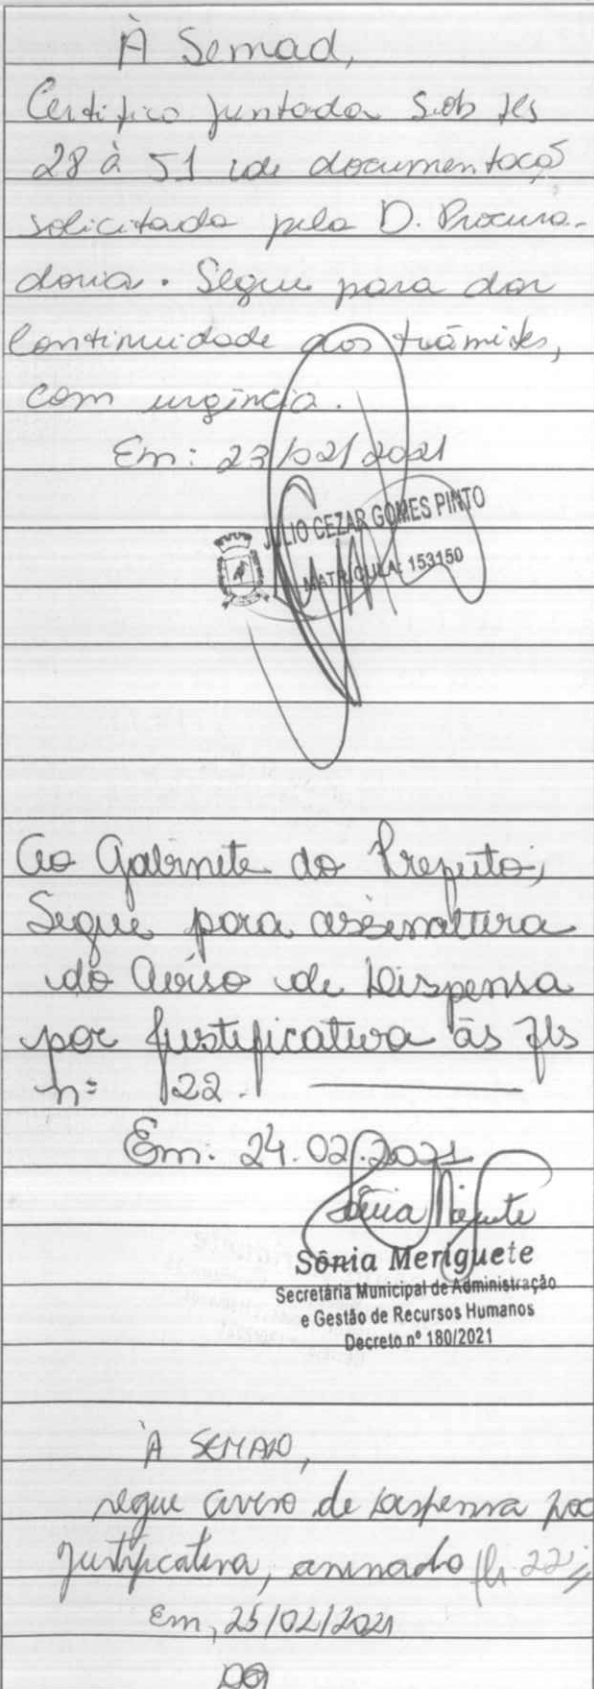 À Semad,
Certifico juntada sob fls
28 à 51 de documentação
solicitada pela D. Procura-
doria. Segue para dar
continuidade aos trâmites,
com urgência.
Em: 23/02/2021
JULIO CEZAR GOMES PINTO
MATRÍCULA: 153150
Ao Gabinete do Prefeito;
Segue para assinattura
do Aviso de Dispensa
por Justificativa às fls
nº 22.
Em: 24.02.2021
Sônia Meriguete
Secretária Municipal de Administração
e Gestão de Recursos Humanos
Decreto nº 180/2021
À SEMAD,
segue aviso de dispensa por
justificativa, assinado fl. 22
Em, 25/02/2021